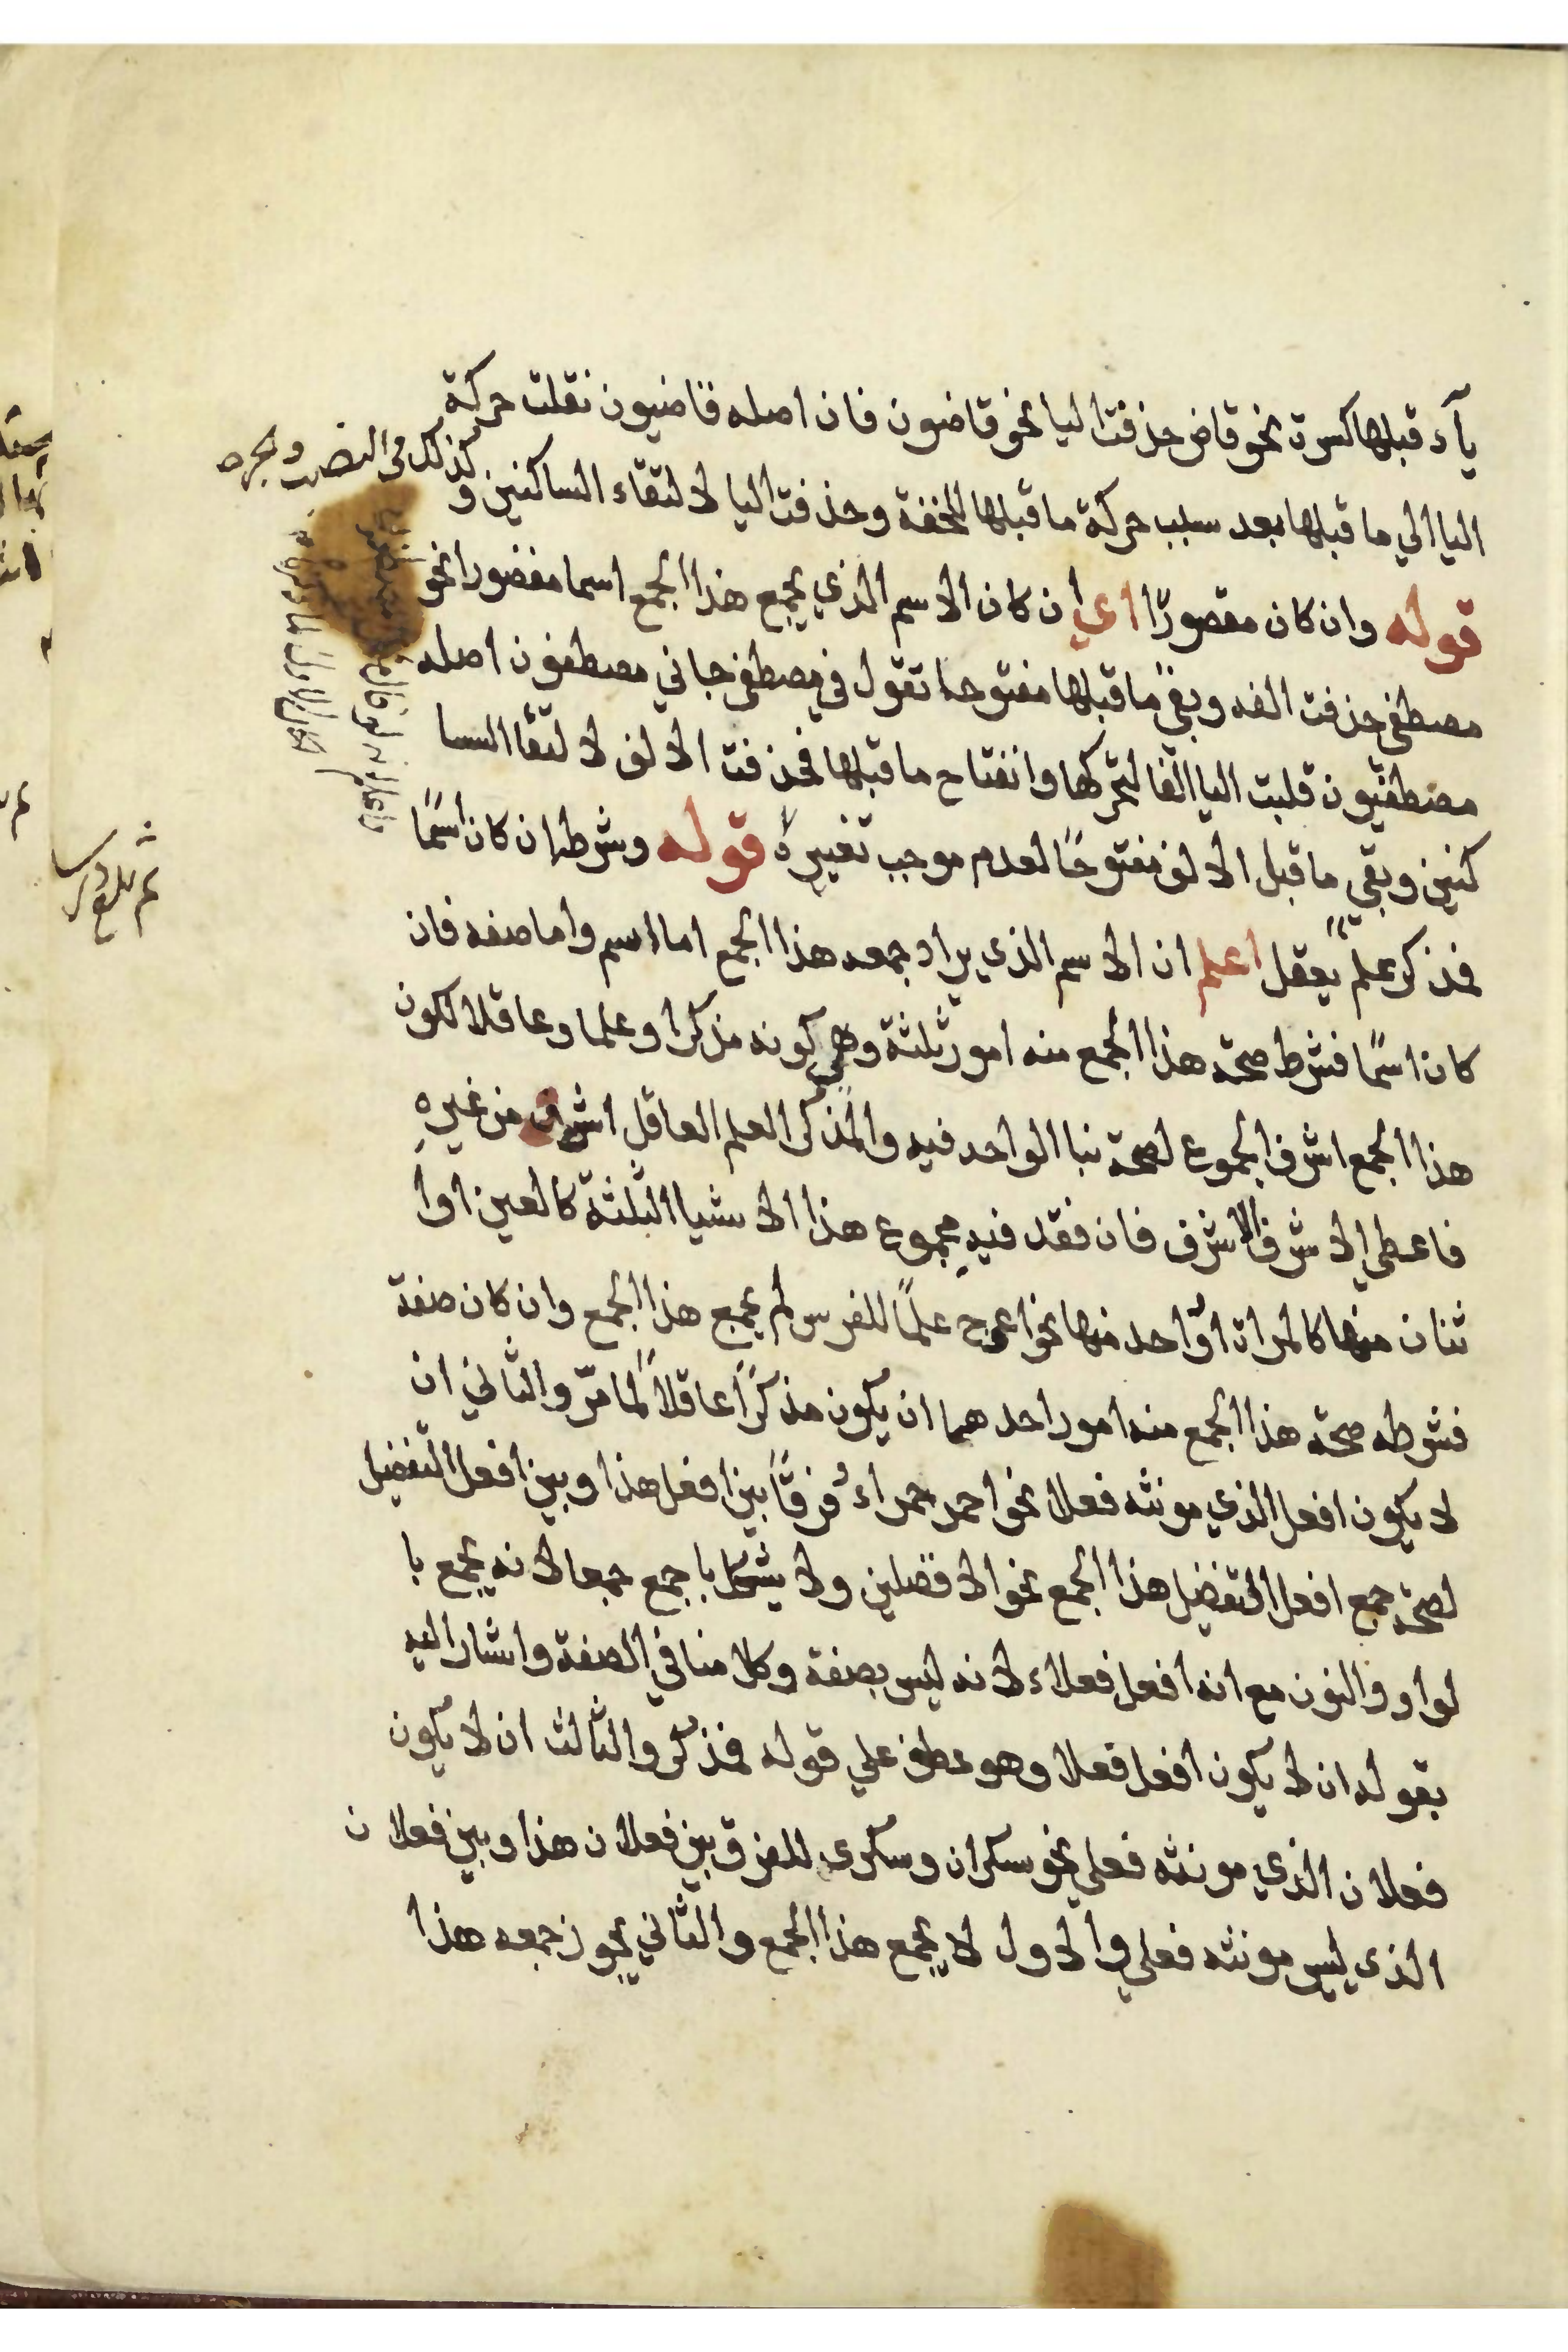 يآء قبلها كسرة نحو قاض حذفت اليا نحو قاضون فان اصله قاضيون نقلت حركة
اليا الي ما قبلها بعد سلب حركة ما قبلها للخفة وحذفت اليا لالتقاء الساكنين و
كذلك في النصب والجر
قوله وان كان مقصورًا اي ان كان الاسم الذي يجمع هذا الجمع اسما مقصورا نحو
مصطفي حذفت الفه وبقي ما قبلها مفتوحا تقول في مصطفي جاني مصطفون اصله
مصطفيون قلبت اليا الفا لتحركها وانفتاح ما قبلها فحذفت الالف لالتقا السا
كنين وبقي ما قبل الالف مفتوحًا لعدم موجب تغييره قوله وشرطه ان كان اسمًا
فمذكر علم يعقل اعلم ان الاسم الذي يراد جمعه هذا الجمع اما اسم واما صفه فان
كان اسمًا فشرط صحة هذا الجمع منه امور ثلثة وهي كونه مذكرا وعلما وعاقلا لكون
هذا الجمع اشرف الجموع لصحة بنا الواحد فيه والمذكر العلم العاقل اشرف من غيره
فاعطي الاشرف الاشرف فان فقد فيه مجموع هذا الاشيا الثلثة كالعين اوا
ثنان منها كالمراة او واحد منها نحو اعوج علمًا للفرس لم يجمع هذا الجمع وان كان صفة
فشرطه صحة هذا الجمع منه امور احدهما ان يكون مذكرًا عاقلاً لما مرّ والثاني ان
لا يكون افعل الذي مونثه فعلا نحو احمر حمراء فرقًا بين افعل هذا وبين افعل التفضيل
لصحة جمع افعل التفضيل هذا الجمع نحو الافضلين ولا يشكل با جمع جمعا لانه يجمع با
لواو والنون مع انه افعل فعلاء لانه ليس بصفة وكلامنا في الصفة واشار اليه
بقوله ان لا يكون افعل فعلا وهو عطف علي قوله فمذكر والثالث ان لا يكون
فعلان الذي مونثه فعلي نحو سكران وسكري للفرق بين فعلان هذا وبين فعلان
الذي ليس مونثه فعلي والاول لا يجمع هذا الجمع والثاني يجوز جمعه هذا